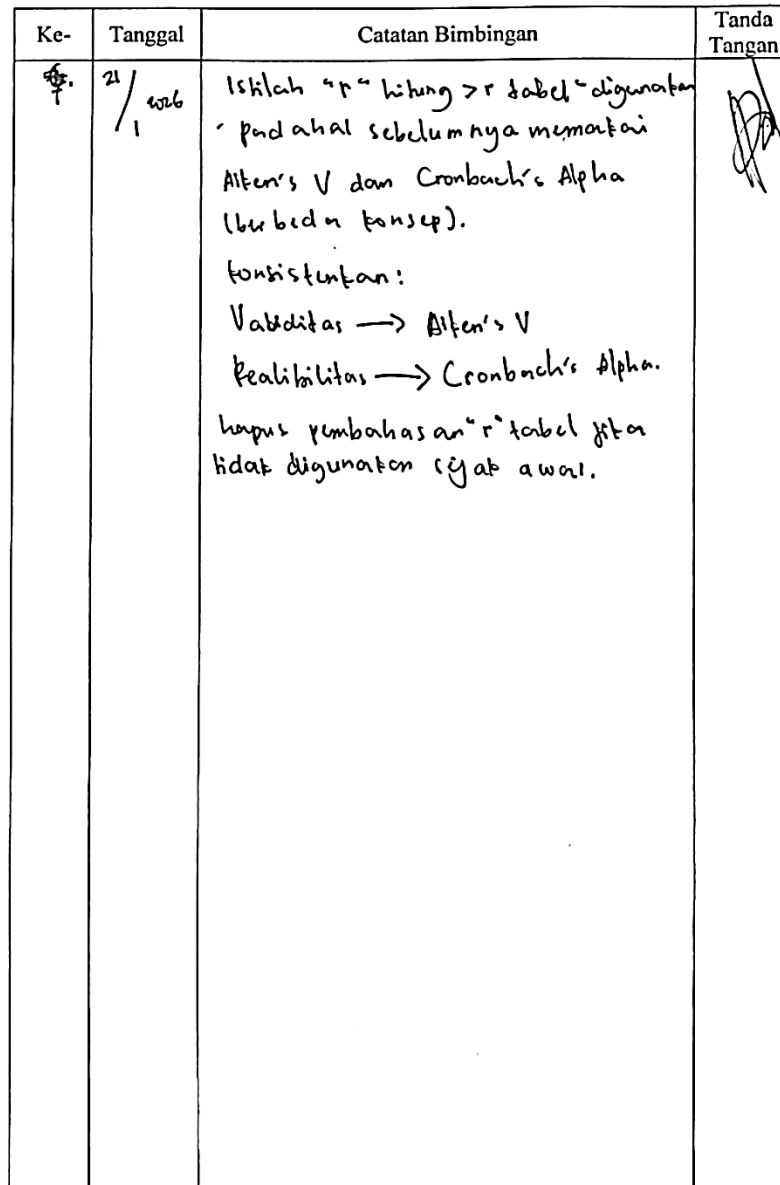 Ke- Tanggal Catatan Bimbingan Tanda Tangan
7. 21/1 2026 Istilah "r" hitung > r tabel" digunakan
padahal sebelumnya memakai
Aiken's V dan Cronbach's Alpha
(berbeda konsep).
konsistenkan:
Validitas → Aiken's V
Realibilitas → Cronbach's Alpha.
hapus pembahasan "r" tabel jika
tidak digunakan sejak awal.